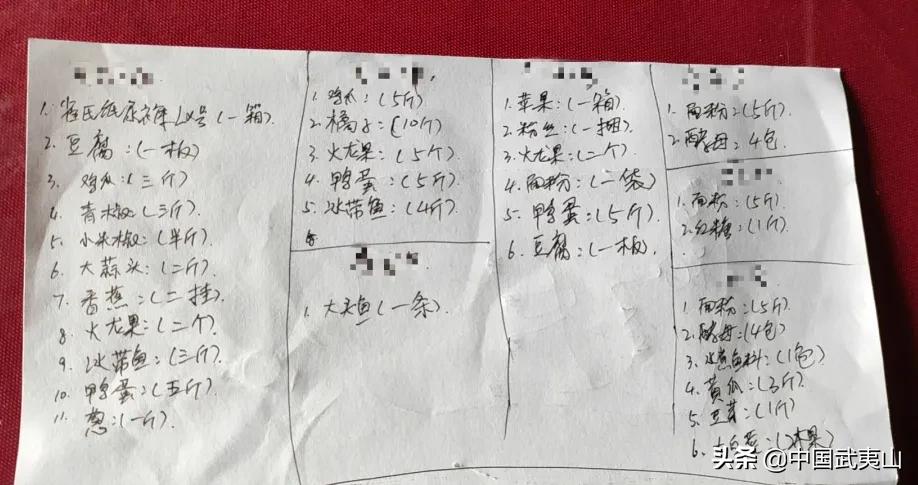 1. 氏纸尿裤 号(一箱)
2. 豆腐:(一板)
3. 鸡爪:(三斤)
4. 青椒:(三斤)
5. 小米椒:(半斤)
6. 大蒜头:(二斤)
7. 香蕉:(二挂)
8. 火龙果:(二个)
9. 冰带鱼:(三斤)
10. 鸭蛋:(五斤)
11. 葱:(一斤)
1. 鸡爪:(5斤)
2. 橘子:(10斤)
3. 火龙果:(5斤)
4. 鸭蛋:(5斤)
5. 冰带鱼:(4斤)
1. 大头鱼(一条)
1. 苹果:(一箱)
2. 粉丝:(一捆)
3. 火龙果:(二个)
4. 面粉:(二袋)
5. 鸭蛋:(5斤)
6. 豆腐:(一板)
1. 面粉:(5斤)
2. 酵母:4包
1. 面粉:(5斤)
2. 红糖:(1斤)
1. 面粉:(5斤)
2. 酵母:(4包)
3. 水煮鱼料:(1包)
4. 黄瓜:(3斤)
5. 豆芽:(1斤)
6. 大白菜:
头条 @中国武夷山